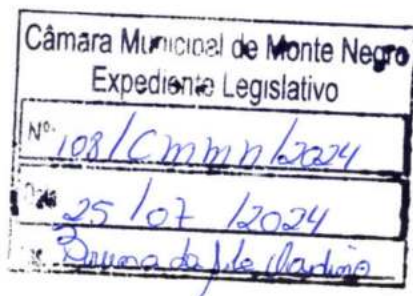 Câmara Municipal de Monte Negro
Expediente Legislativo
Nº 108/Cmmn/2024
25/07/2024
Bruna da